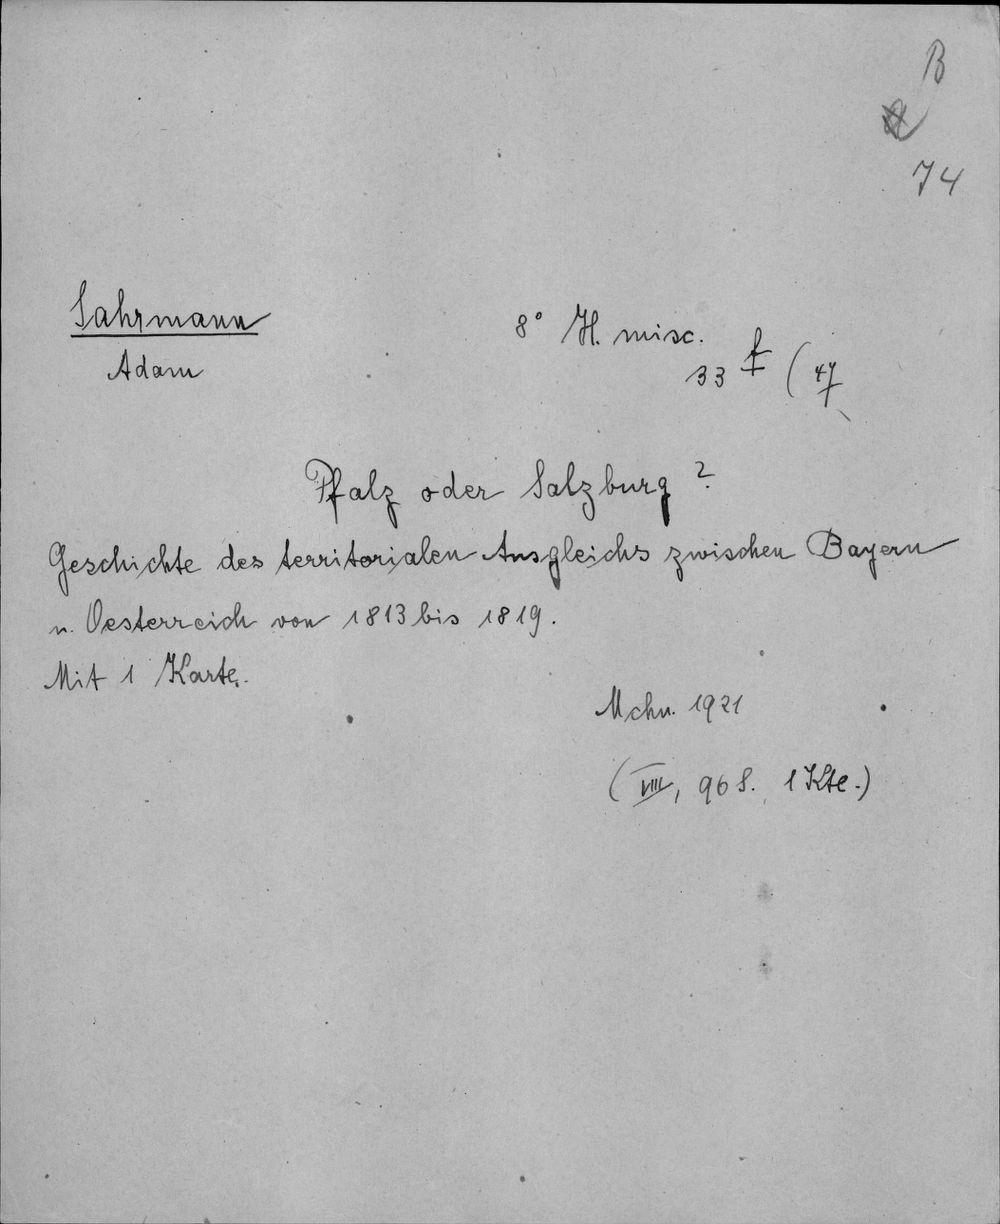 B
74
Sahrmann
Adam
8° H. misc.
33 f (47
Pfalz oder Salzburg?
Geschichte des territorialen Ausgleichs zwischen Bayern
u. Oesterreich von 1813 bis 1819.
Mit 1 Karte.
Mchn. 1921
(VIII, 96 S. 1 Kte.)